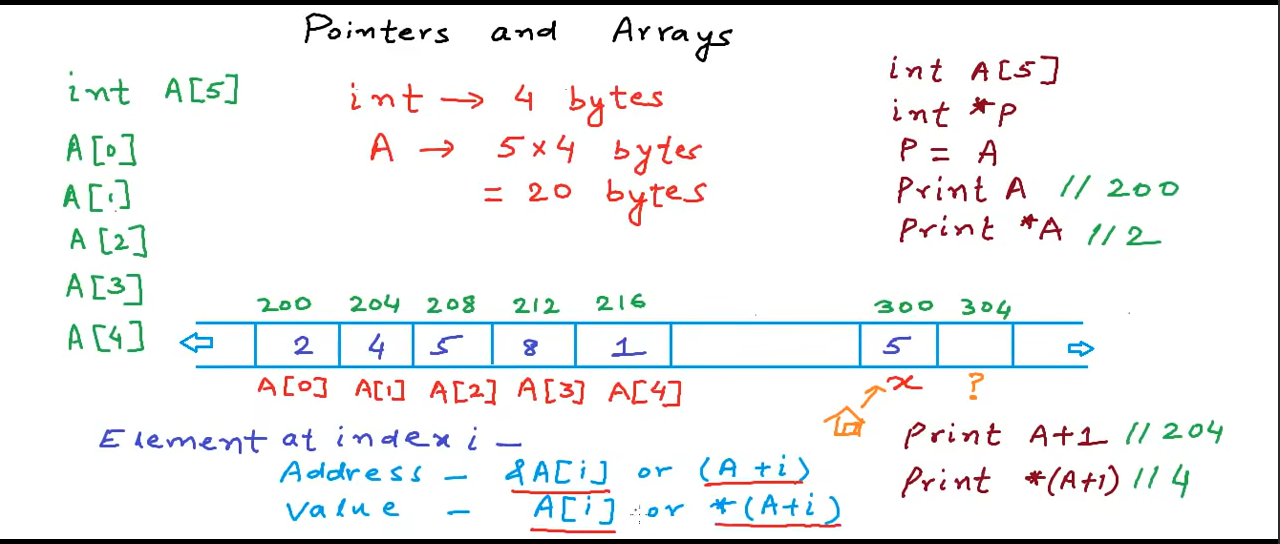 Pointers and Arrays
int A[5]
A[0]
A[1]
A[2]
A[3]
A[4]
int → 4 bytes
A → 5×4 bytes
= 20 bytes
int A[5]
int *P
P = A
Print A // 200
Print *A // 2
200 204 208 212 216 300 304
2 4 5 8 1 5
A[0] A[1] A[2] A[3] A[4] x ?
Element at index i –
Address – &A[i] or (A+i)
Value – A[i] or *(A+i)
Print A+1 // 204
Print *(A+1) // 4